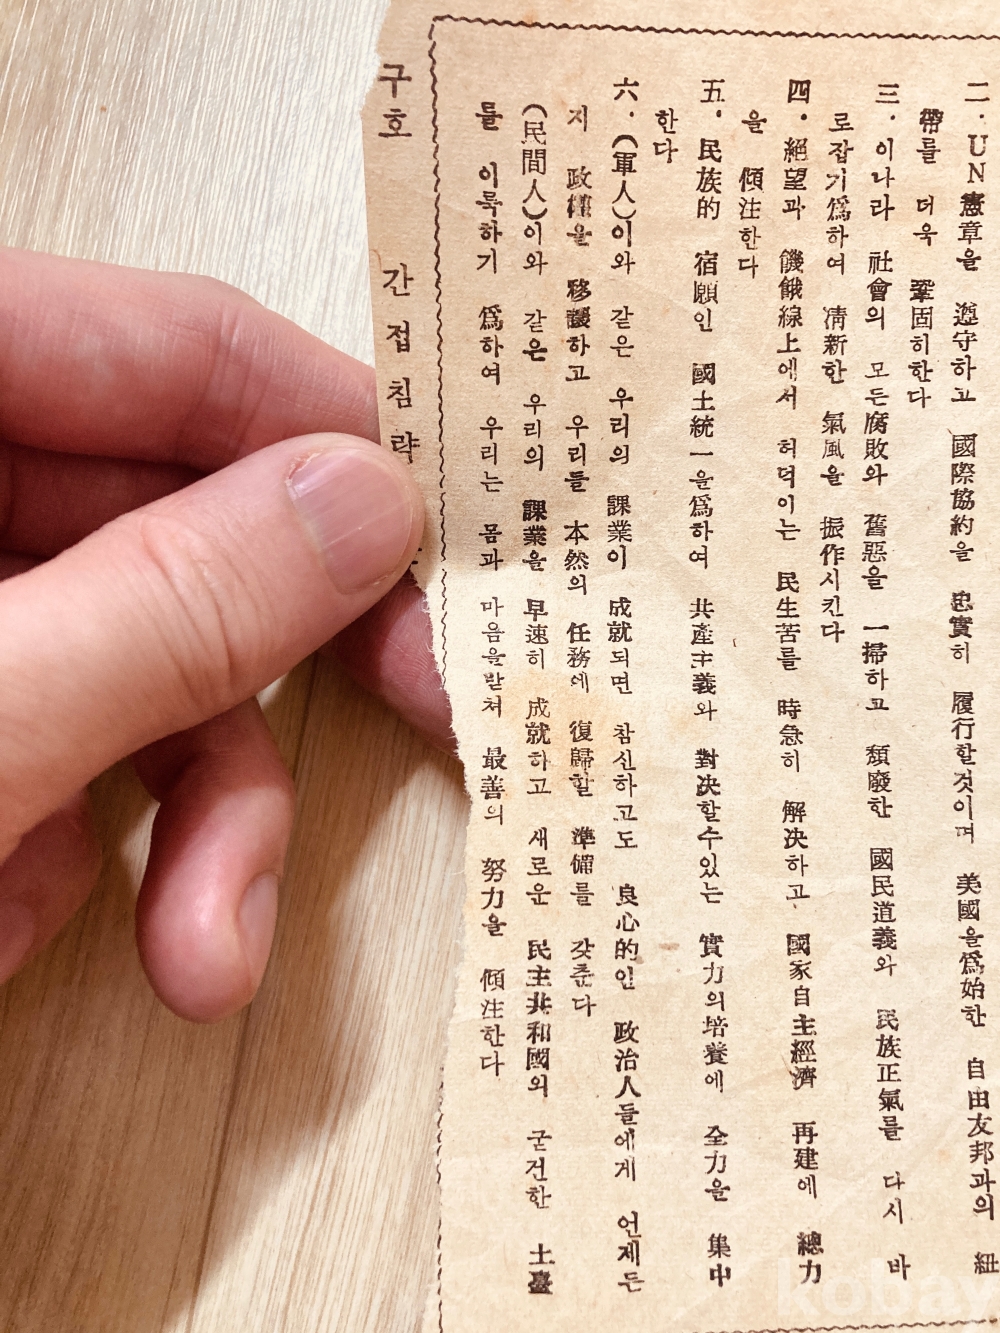 二. UN憲章을 遵守하고 國際協約을 忠實히 履行할것이며 美國을爲始한 自由友邦과의 紐
帶를 더욱 鞏固히한다
三. 이나라 社會의 모든腐敗와 舊惡을 一掃하고 頹廢한 國民道義와 民族正氣를 다시 바
로잡기爲하여 淸新한 氣風을 振作시킨다
四. 絕望과 饑餓線上에서 허덕이는 民生苦를 時急히 解決하고 國家自主經濟 再建에 總力
을 傾注한다
五. 民族的 宿願인 國土統一을爲하여 共產主義와 對決할수있는 實力의培養에 全力을 集中
한다
六. (軍人)이와 같은 우리의 課業이 成就되면 참신하고도 良心的인 政治人들에게 언제든
지 政權을 移讓하고 우리들 本然의 任務에 復歸할 準備를 갖춘다
(民間人)이와 같은 우리의 課業을 早速히 成就하고 새로운 民主共和國의 굳건한 土臺
를 이룩하기 爲하여 우리는 몸과 마음을받쳐 最善의 努力을 傾注한다
구호 간접침략
kobay